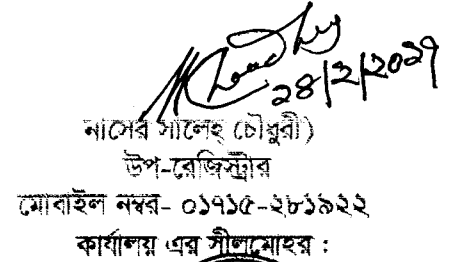 ২৪/২/২০২৭
নাসের সালেহ চৌধুরী)
উপ-রেজিস্ট্রার
মোবাইল নম্বর- ০১৭১৫-২৮১৯২২
কার্যালয় এর সীলমোহর :